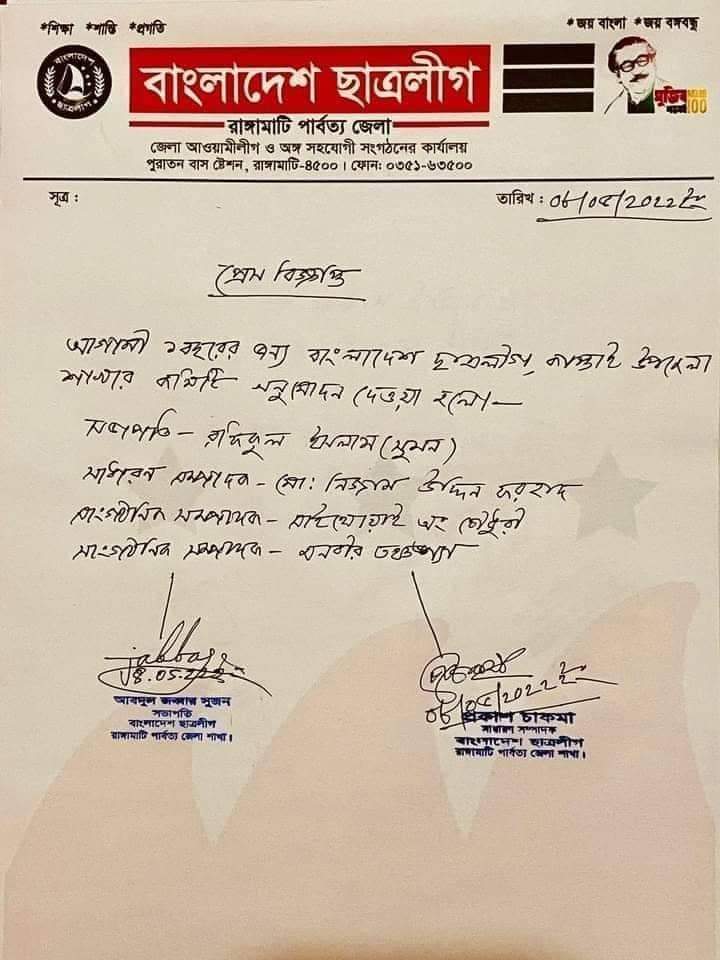 *শিক্ষা *শান্তি *প্রগতি
*জয় বাংলা *জয় বঙ্গবন্ধু
বাংলাদেশ
ছাত্রলীগ
বাংলাদেশ ছাত্রলীগ
মুজিব
100
রাঙ্গামাটি পার্বত্য জেলা
জেলা আওয়ামীলীগ ও অঙ্গ সহযোগী সংগঠনের কার্যালয়
পুরাতন বাস ষ্টেশন, রাঙ্গামাটি-৪৫০০। ফোন: ০৩৫১-৬৩৫০০
সূত্র :
তারিখ : ০৮/০৫/২০২২ ইং
প্রেস বিজ্ঞপ্তি
আগামী ১ বছরের জন্য বাংলাদেশ ছাত্রলীগ, কাপ্তাই উপজেলা
শাখার কমিটি অনুমোদন দেওয়া হলো—
সভাপতি – রফিকুল ইসলাম (সুমন)
সাধারন সম্পাদক – মো: নিজাম উদ্দিন ফরহাদ
সাংগঠনিক সম্পাদক – চৌধুরী
সাংগঠনিক সম্পাদক – তঞ্চঙ্গ্যা
jabbar
08.05.22
আবদুল জব্বার সুজন
সভাপতি
বাংলাদেশ ছাত্রলীগ
রাঙ্গামাটি পার্বত্য জেলা শাখা।
০৮/০৫/২০২২ ইং
প্রকাশ চাকমা
সাধারণ সম্পাদক
বাংলাদেশ ছাত্রলীগ
রাঙ্গামাটি পার্বত্য জেলা শাখা।